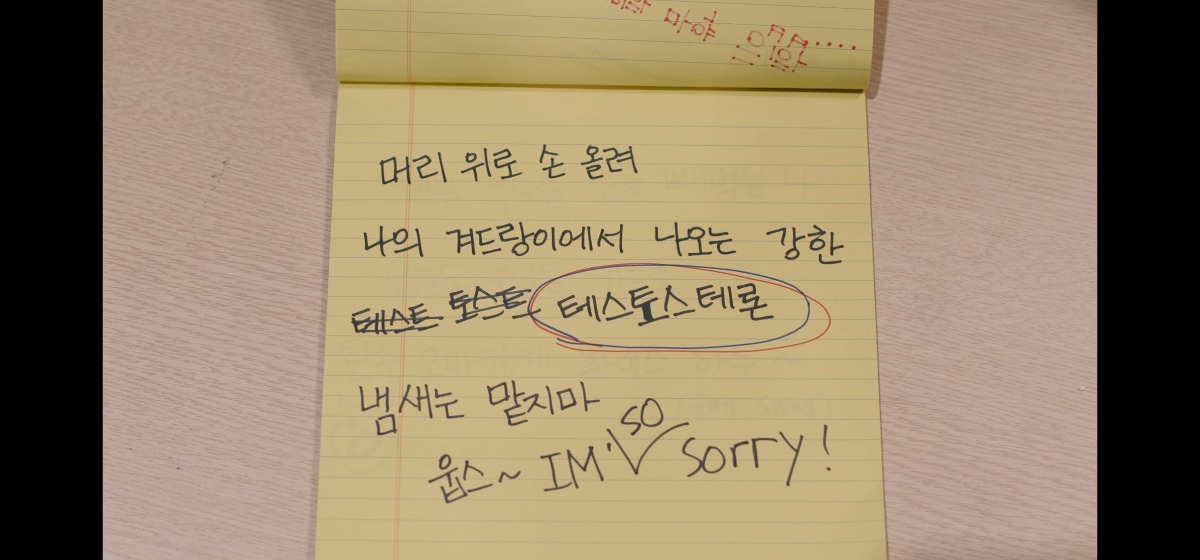 마얀 으악
머리 위로 손 올려
나의 겨드랑이에서 나오는 강한
테스트 토스트 테스토스테론
냄새는 맡지마
웁스~ IM' so sorry!